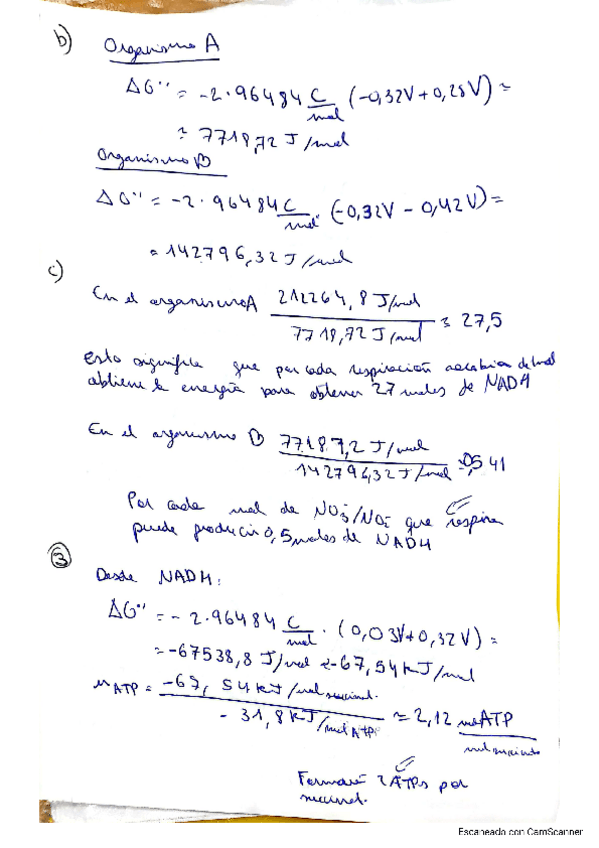 b) Organismo A
ΔG°' = -2·96484 C/mol (-0,32V+0,28V) =
= 7718,72 J/mol
Organismo B
ΔG°' = -2·96484 C/mol (-0,32V - 0,42V) =
= 142796,32 J/mol
c)
En el organismo A 212264,8 J/mol / 7718,72 J/mol = 27,5
Esto significa que por cada respiración aerobia de 1 mol
obtiene la energía para obtener 27 moles de NADH
En el organismo B 77187,2 J/mol / 142796,32 J/mol = 0,541
Por cada mol de NO3⁻/NO2⁻ que respira
puede producir 0,5 moles de NADH
③
Desde NADH:
ΔG°' = -2·96484 C/mol · (0,03V+0,32V) =
= -67538,8 J/mol ≈ -67,54 kJ/mol
nATP = -67,54 kJ/mol / -31,8 kJ/mol ATP = 2,12 ATP
Formaré 2 ATPs por
Escaneado con CamScanner